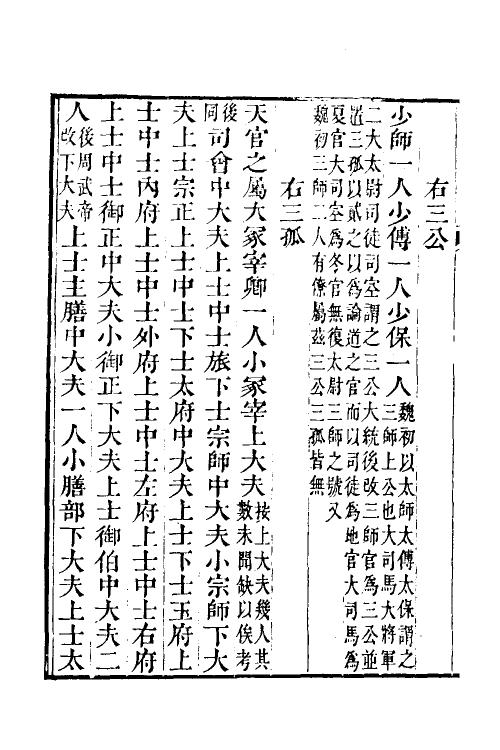 右三公
少師一人少傅一人少保一人魏初以太師太傅太保謂之三師上公也大司馬大將軍
二大太尉司徒司空謂之三公大統後改三師官爲三公並
置三孤以貳之以爲論道之官而以司徒爲地官大司馬爲
夏官大司空爲冬官無復太尉三師之號又
魏初三師二人有僚屬茲三公三孤皆無
右三孤
天官之屬大冢宰卿一人小冢宰上大夫按上大夫幾人其數未聞缺以俟考
後同司會中大夫上士中士旅下士宗師中大夫小宗師下大
夫上士宗正上士中士下士太府中大夫上士下士玉府上
士中士內府上士中士外府上士中士左府上士中士右府
上士中士御正中大夫小御正下大夫上士御伯中大夫二
人後周武帝改下大夫上士主膳中大夫一人小膳部下大夫上士太